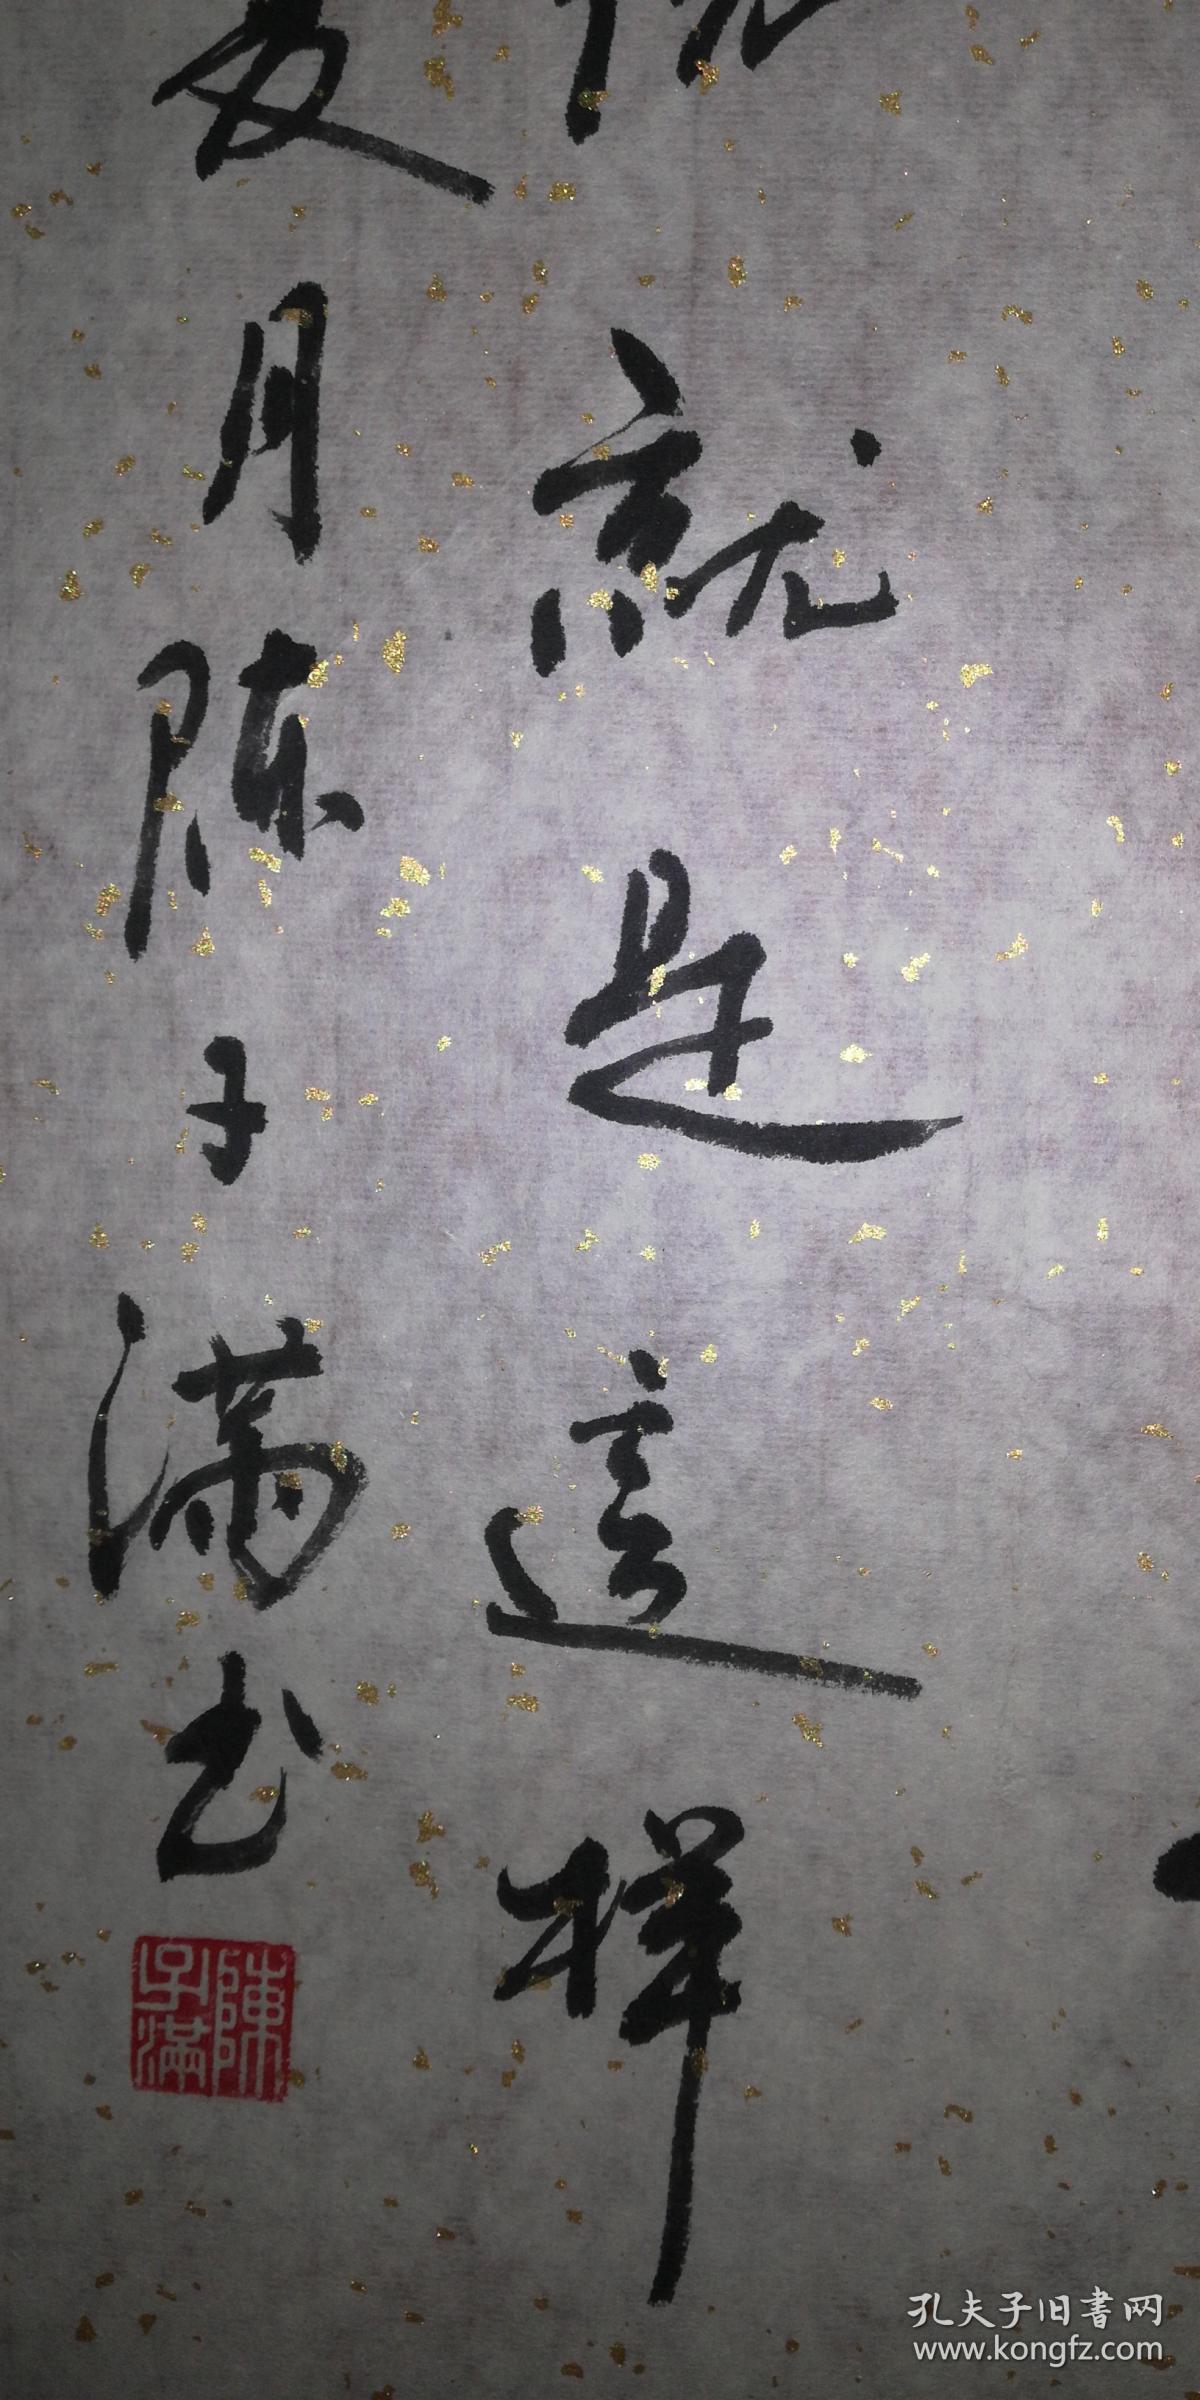 就是這样
夏月陈子满书
陳子滿
孔夫子旧書网
www.kongfz.com